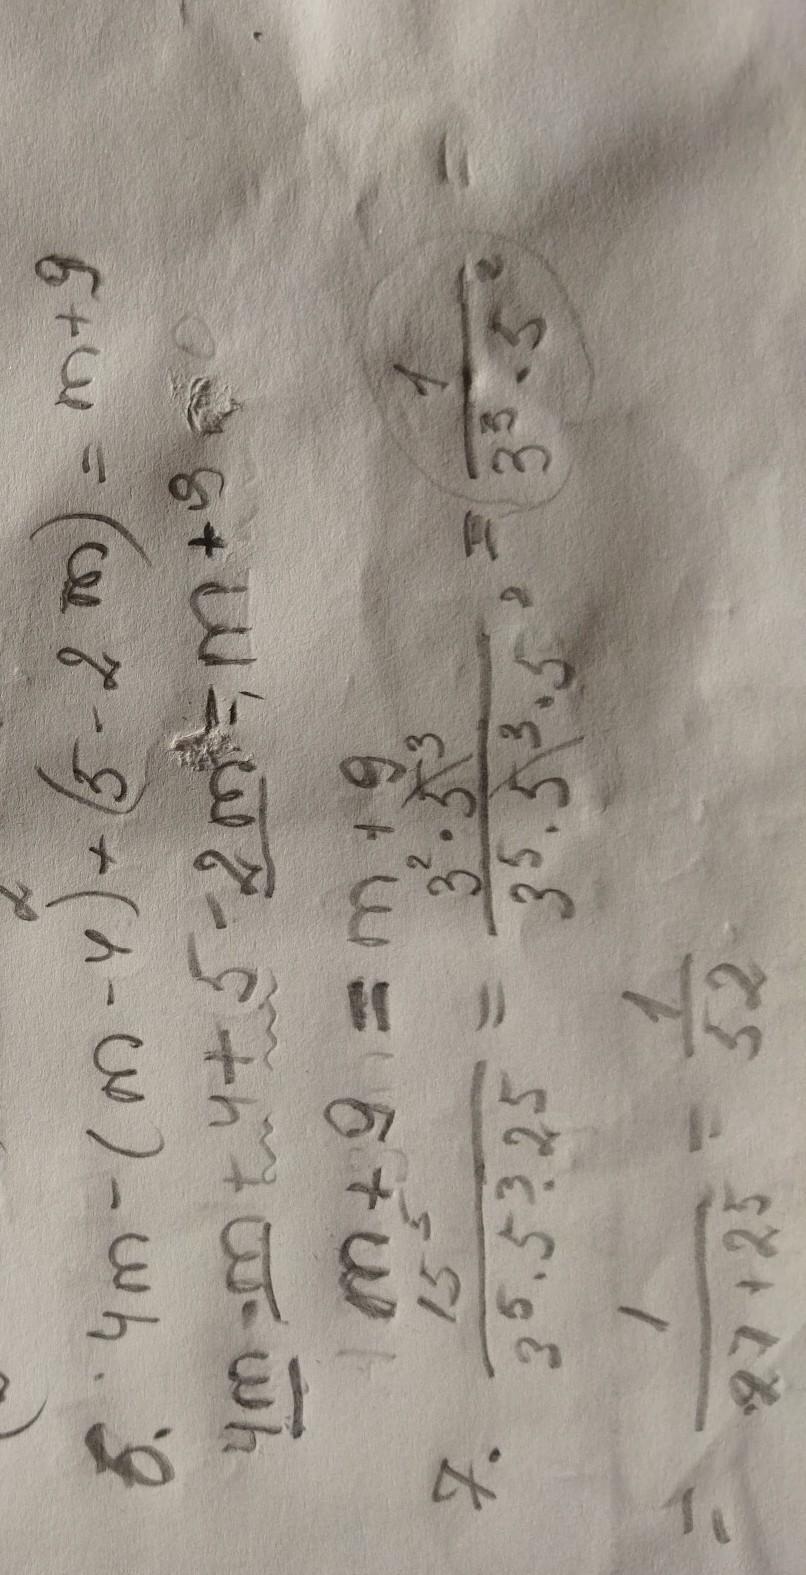 5. 4m-(m-4)+(5-2m)=m+9
4m-m+4+5-2m=m+9
m+9=m+9
7. 15⁵/(3⁵·5³·25) = (3²·5³)/(3⁵·5³·5²) = 1/(3³·5²) =
= 1/(27+25) = 1/52